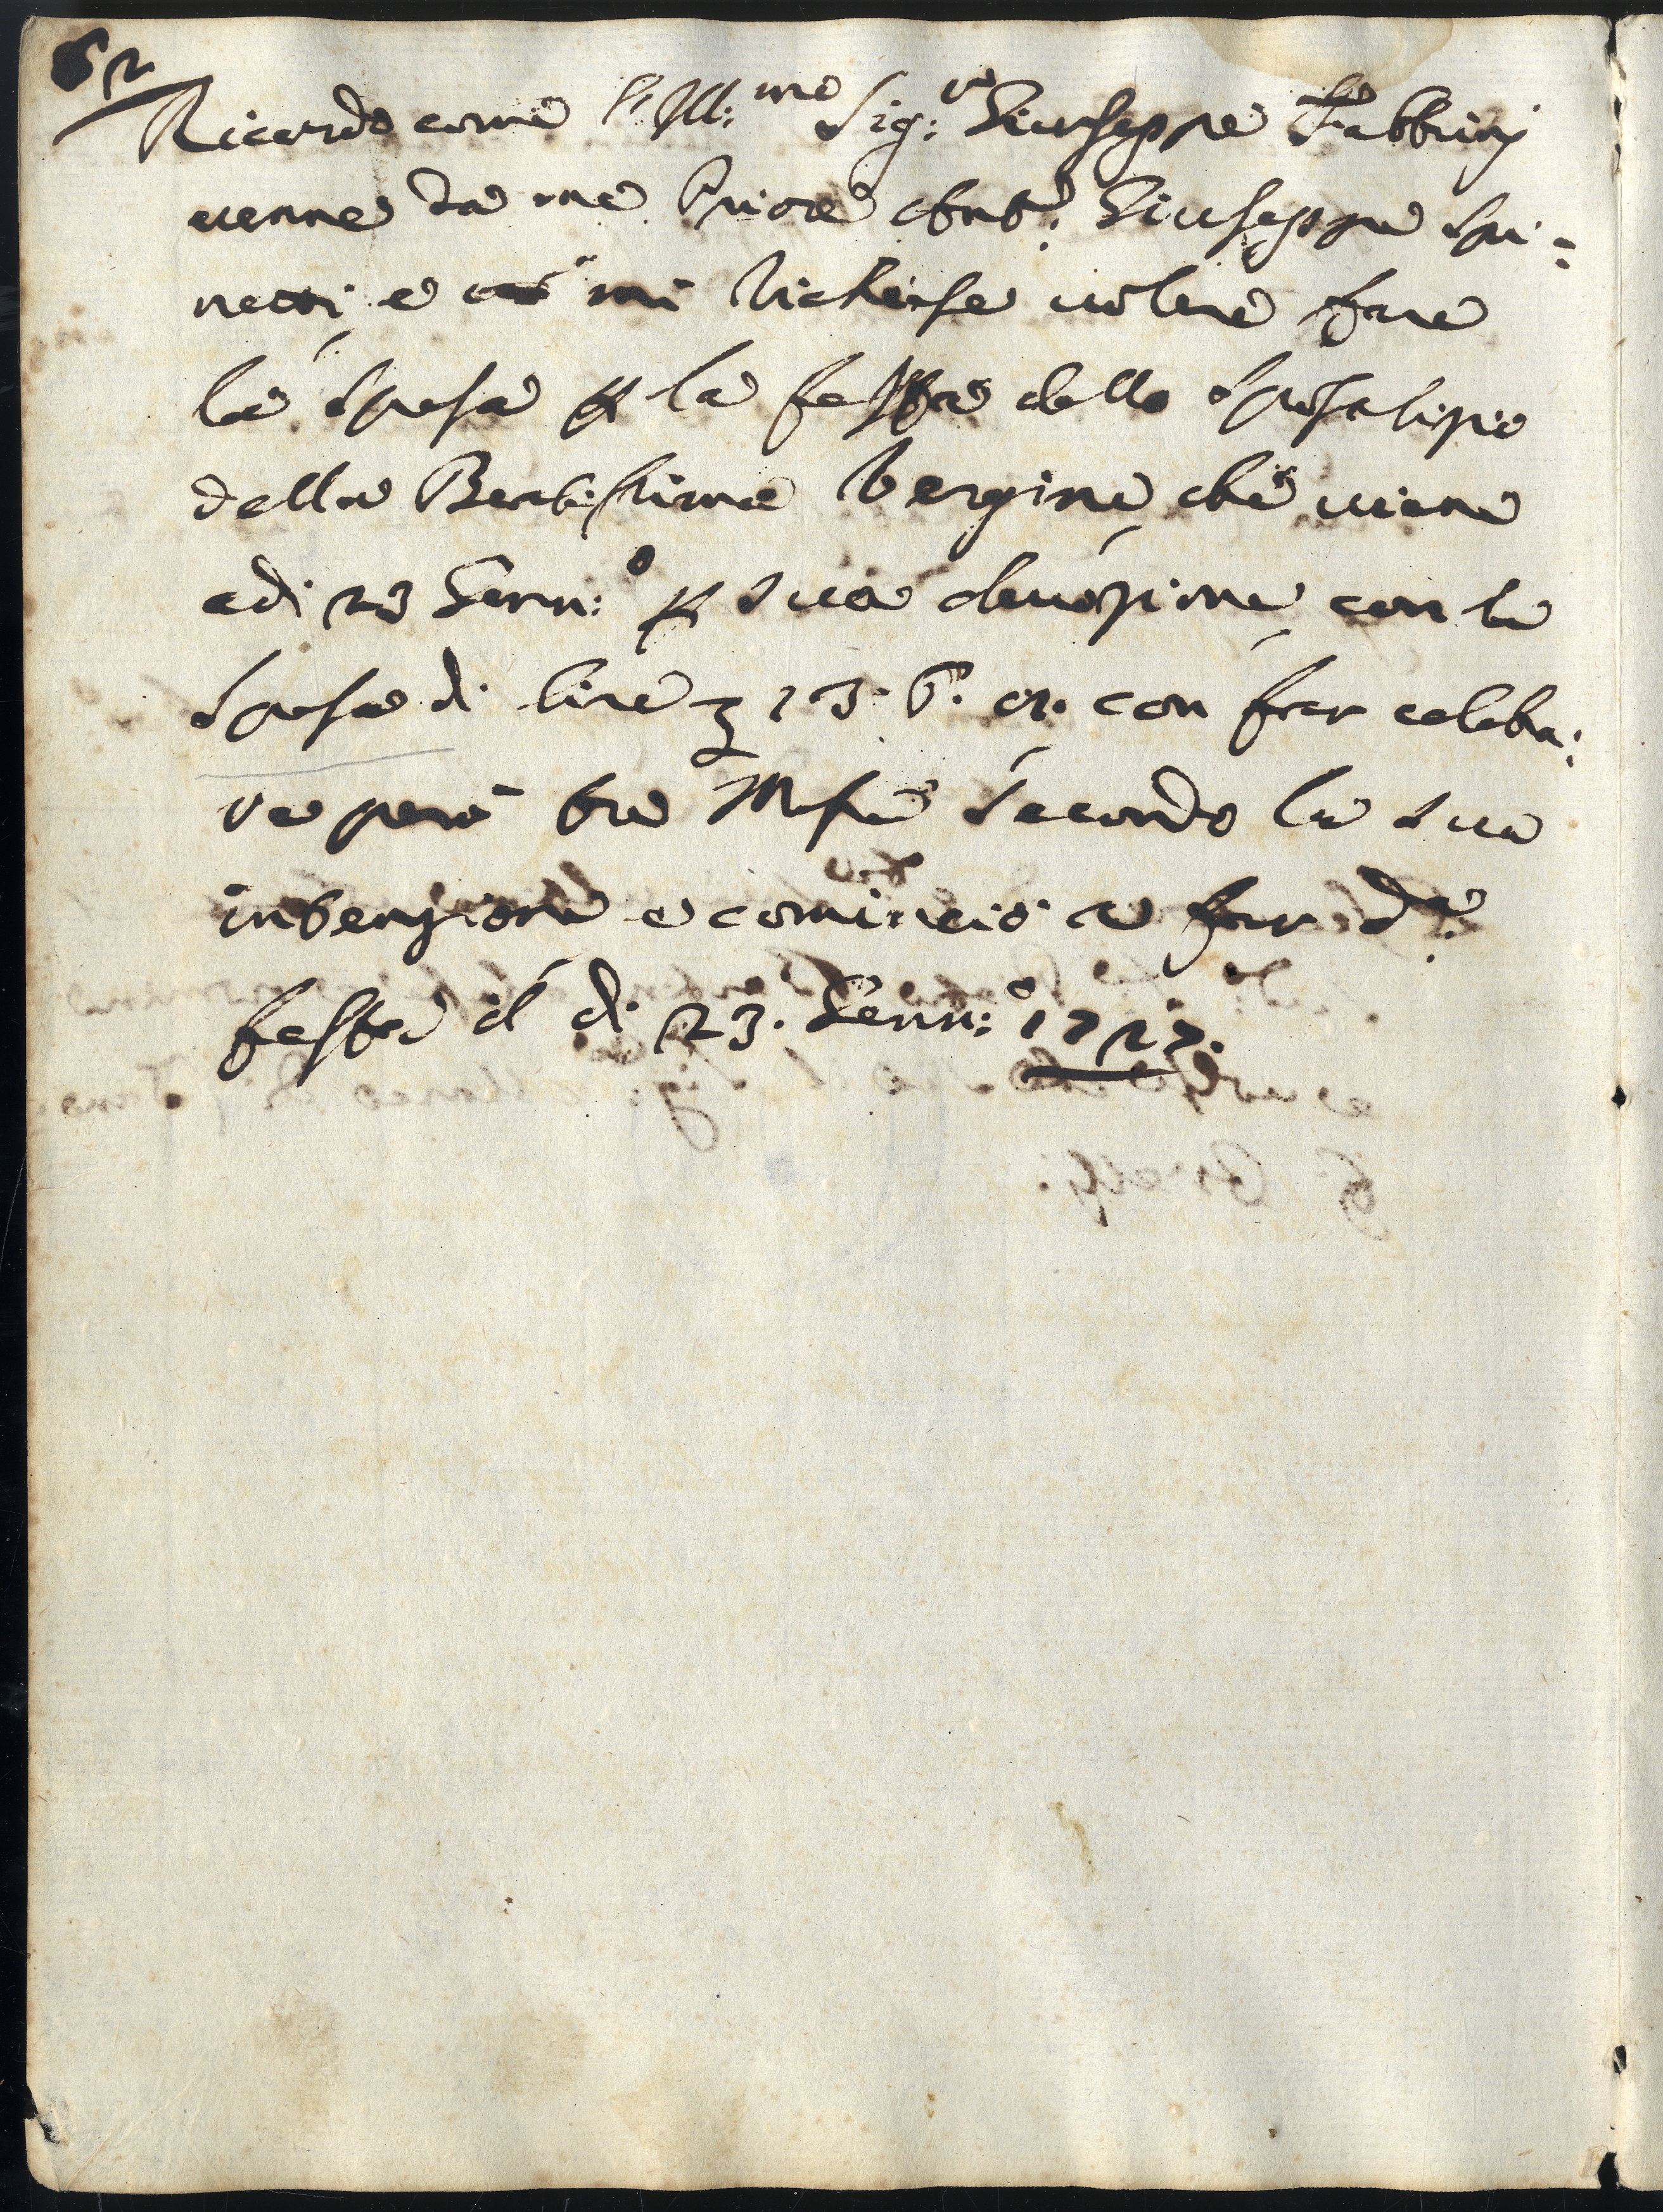 62
Ricordo come l'Ill:mo Sig:re Giuseppe Fabbrinj
uenne da me Priore Ant.o Giuseppe Spi:
netti, e mi richiese uolere fare
la spesa p la festa dello Sposalizio
della Beatissima Vergine, che uiene
adi 23 Genn:o p sua deuozione, con la
spesa di lire 13. 6. 8. con far celebra:
re però tre Messe secondo la sua
intenzione e cominciò a far d.a
festa il di 23. Genn:o 1727.